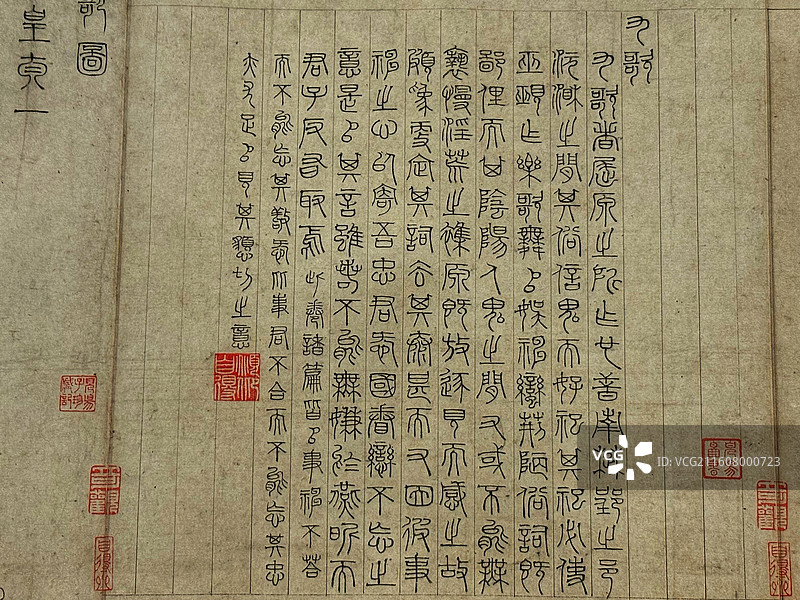 九歌
九歌者屈原之所作也昔南楚郢之邑
沅湘之間其俗信鬼而好祀其祀必使
巫覡作樂歌舞以娛神蠻荊陋俗詞既
鄙俚而其陰陽人鬼之間又或不能無
褻慢淫荒之雜原既放逐見而感之故
頗為更定其詞去其泰甚而又因彼事
神之心以寄吾忠君愛國眷戀不忘之
意是以其言雖若不能無嫌於燕昵而
君子反有取焉此卷諸篇皆以事神不答
而不能忘其敬愛比事君不合而不能忘其忠
赤尤足以見其懇切之意
歌圖
皇貞一
vcg 视觉中国
ID:VCG211608000723